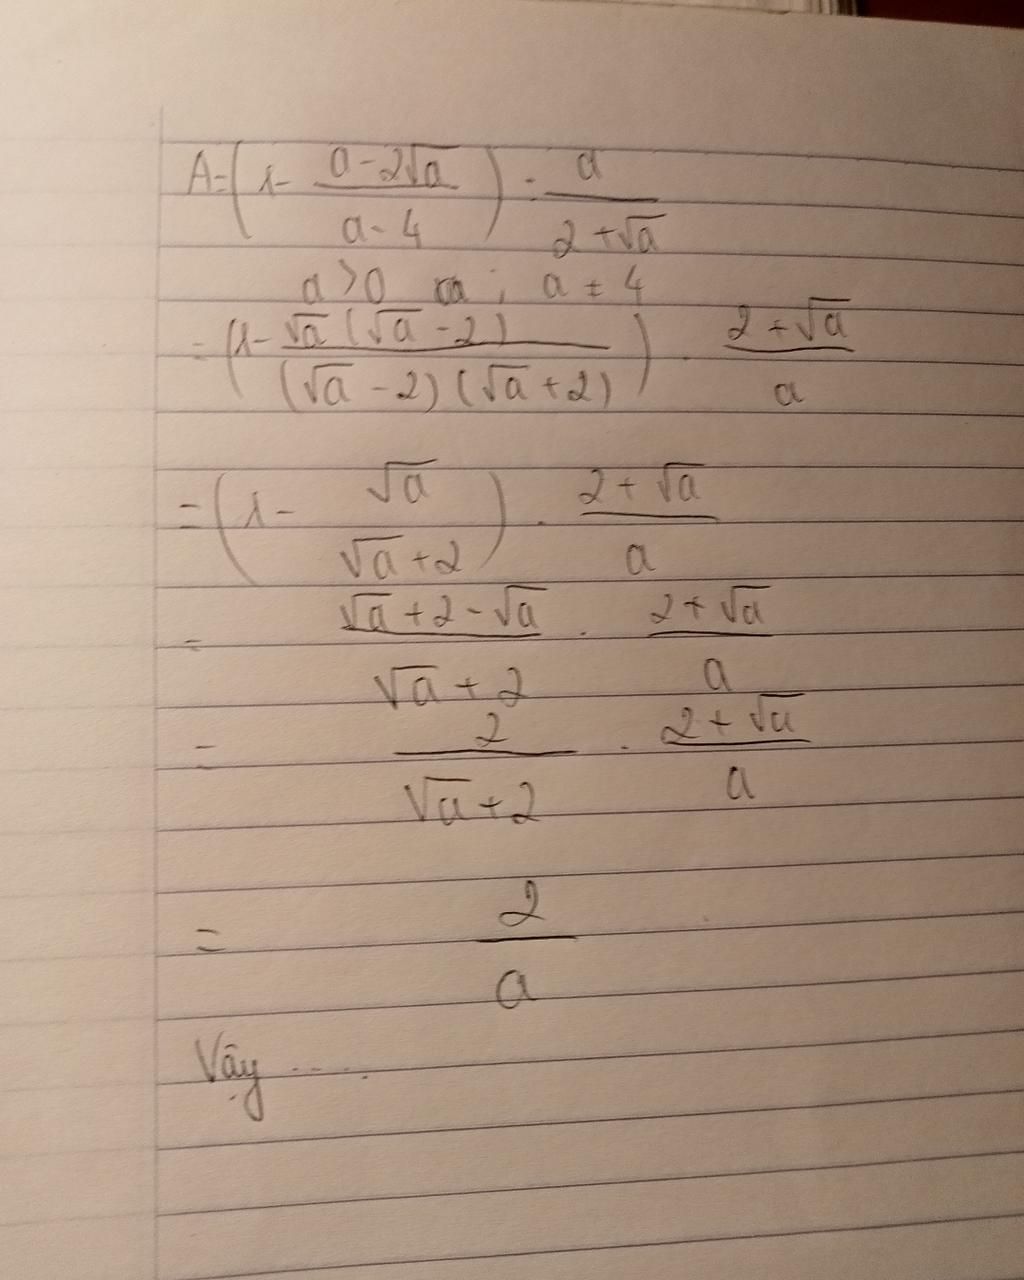 A=(1-\frac{a-2\sqrt{a}}{a-4}) : \frac{a}{2+\sqrt{a}}
a>0 ; a ≠ 4
= (1-\frac{\sqrt{a}(\sqrt{a}-2)}{(\sqrt{a}-2)(\sqrt{a}+2)}) . \frac{2+\sqrt{a}}{a}
= (1-\frac{\sqrt{a}}{\sqrt{a}+2}) . \frac{2+\sqrt{a}}{a}
= \frac{\sqrt{a}+2-\sqrt{a}}{\sqrt{a}+2} . \frac{2+\sqrt{a}}{a}
= \frac{2}{\sqrt{a}+2} . \frac{2+\sqrt{a}}{a}
= \frac{2}{a}
Vậy .....